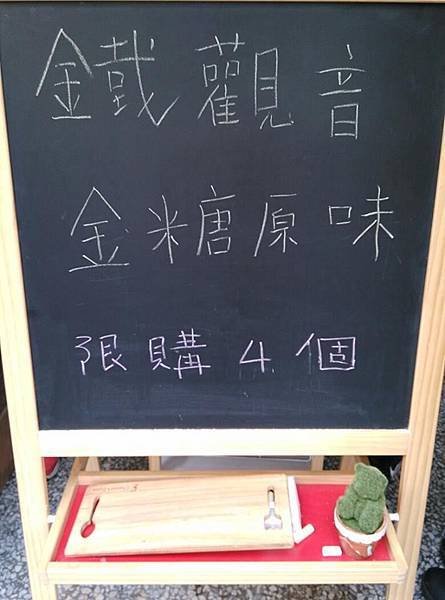 鐵觀音
金糖原味
限購4個